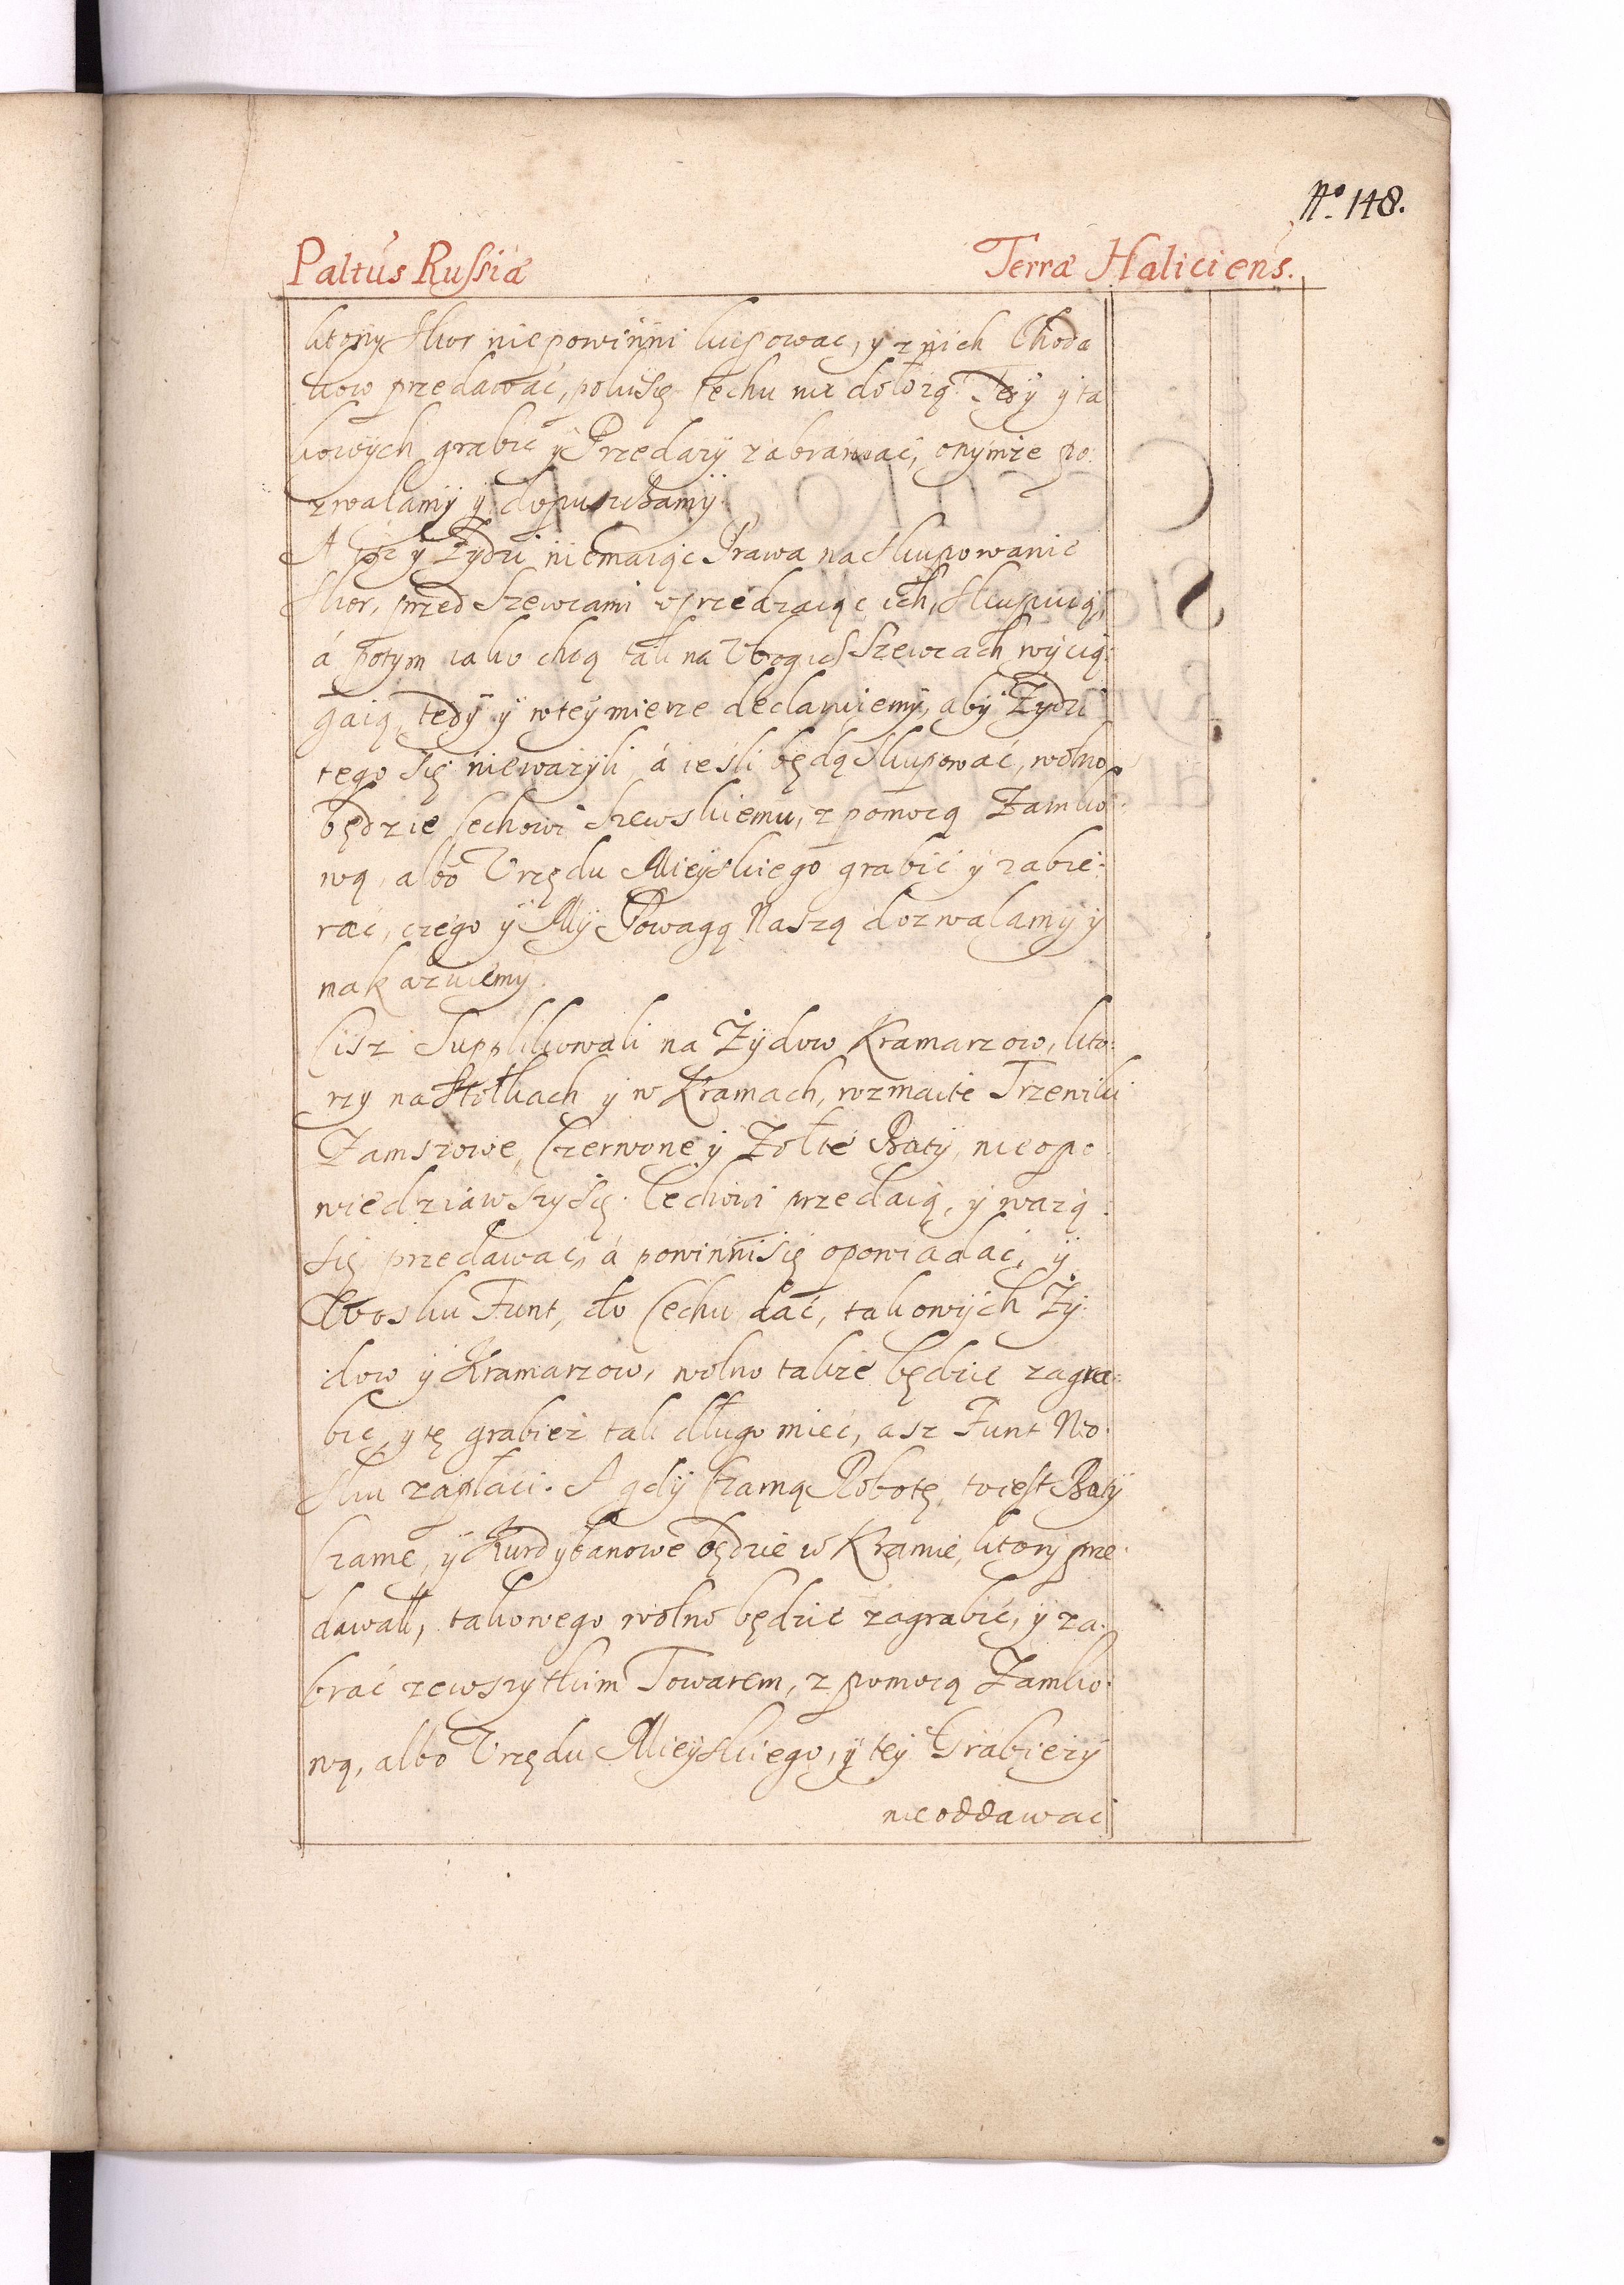 No. 148.
Paltûs Russiæ Terræ Haliciens.
ktorzy skor niepowinni kupować, y z nich Choda
kow przedawać, pokisię Cechu nie dołożą. Tedy y ta
kowych grabić y Przedaży zabraniać, onymże po:
zwalamy y dopusczamy.
A że y Żydzi niemaiąc Prawa na skupowanie
skor, przed Szewcami vprzedzaiąc ich, skupuią,
á potym iako chcą tak na Vbogich Szewcach wycią:
gaią, tedy y wtey mierze declaruiemy, aby Żydzi
tego się nieważyli, á ieśli będą skupować, wolno
będzie Cechowi Szewskiemu, z pomocą Zamko:
wą, albo Vrzędu Mieyskiego grabić y zabie:
rać, czego y My Powagą Naszą dozwalamy y
nakazuiemy.
Cisz Supplikowali na Żydow Kramarzow, kto:
rzy na Stołkach y w Kramach, rozmaite Trzewiki
Zamszowe, Czerwone y Zołte Boty, nieopo:
wiedziawszysię Cechowi przedaią, y ważą:
się przedawać, á powinnisię opowiadać, y
Wosku Funt, do Cechu dać, takowych Ży:
dow y Kramarzow, wolno także będzie zagra:
bić, y tę grabież tak długo mieć, asz Funt Wo:
sku zapłaci. A gdy Czarną Robotę, toiest Boty
Czarne, y Kurdybanowe będzie w Kramie, ktory prze:
dawał, takowego wolno będzie zagrabić, y za:
brać zewszytkim Towarem, z pomocą Zamko:
wą, albo Vrzędu Mieyskiego, y tey Grabieży
nieoddawać